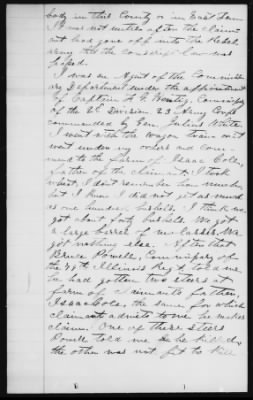 body in this County or in East Tenn
I was not uneasy after the claim-
ant had gone off into the Rebel
Army till the conscript law was
passed.
I was an Agent of the Commissa-
ry Department under the appointment
of Captain A. G. Commissary
of the 2d Division 23 Army Corps
commanded by Gen. Julius White
I went with the wagon train and it
went under my orders and com-
mand to the farm of Isaac Cole,
father of the claimant. I took
wheat, I don't remember how much
but I know I did not get as much
as one hundred bushels. I think we
got about forty bushels. We got
a large barrel of molasses. We
got nothing else. After that
Bruce Powell, Commissary of
the Illinois Regt. told me
he had gotten two steers at
farm of claimants father,
Isaac Cole, the same for which
claimant admits to me he makes
claim. One of these steers
Powell told me he killed,
the other was not fit to kill